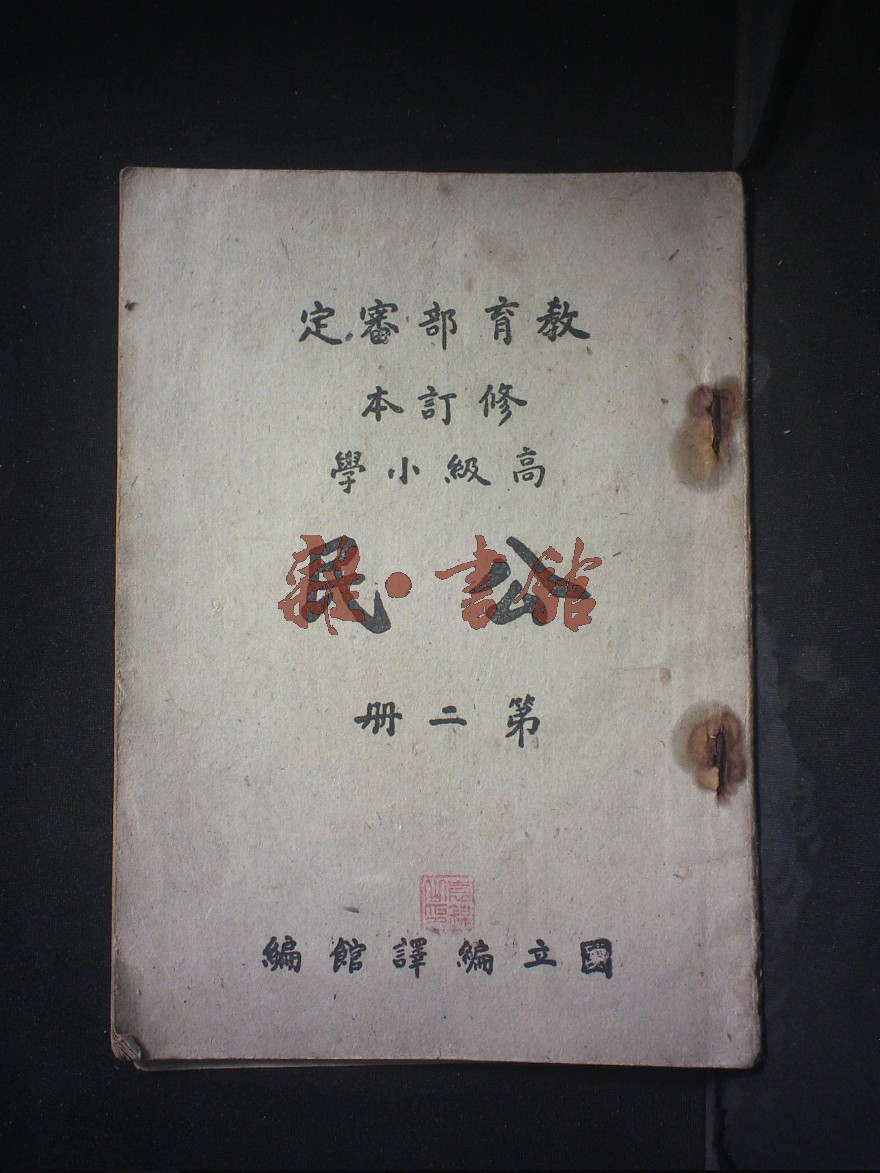 教育部審定
修訂本
高級小學
公民
第二册
國立編譯館編